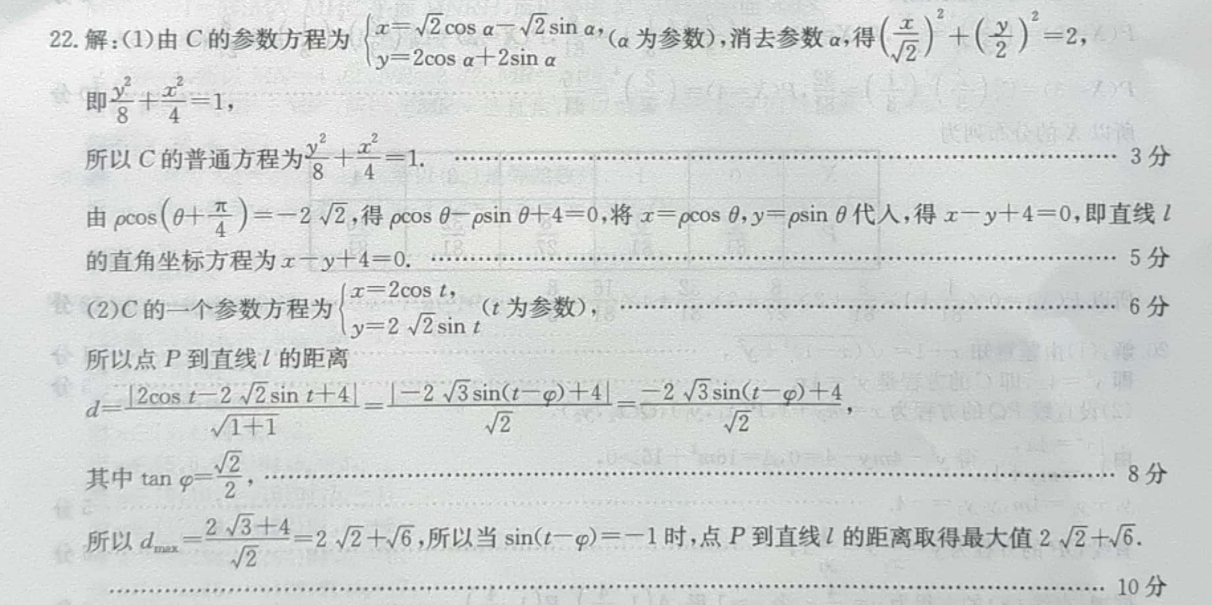 22. 解:(1)由 C 的参数方程为{x=√2cos α-√2sin α, y=2cos α+2sin α (α 为参数),消去参数 α,得(x/√2)²+(y/2)²=2,
即y²/8+x²/4=1,
所以 C 的普通方程为y²/8+x²/4=1. ………… 3 分
由 ρcos(θ+π/4)=-2√2,得 ρcos θ-ρsin θ+4=0,将 x=ρcos θ,y=ρsin θ 代入,得 x-y+4=0,即直线 l
的直角坐标方程为 x-y+4=0. ………… 5 分
(2)C 的一个参数方程为{x=2cos t, y=2√2sin t (t 为参数), ………… 6 分
所以点 P 到直线 l 的距离
d=|2cos t-2√2sin t+4|/√(1+1)=|-2√3sin(t-φ)+4|/√2=(-2√3sin(t-φ)+4)/√2,
其中 tan φ=√2/2, ………… 8 分
所以 dmax=(2√3+4)/√2=2√2+√6,所以当 sin(t-φ)=-1 时,点 P 到直线 l 的距离取得最大值 2√2+√6.
………… 10 分